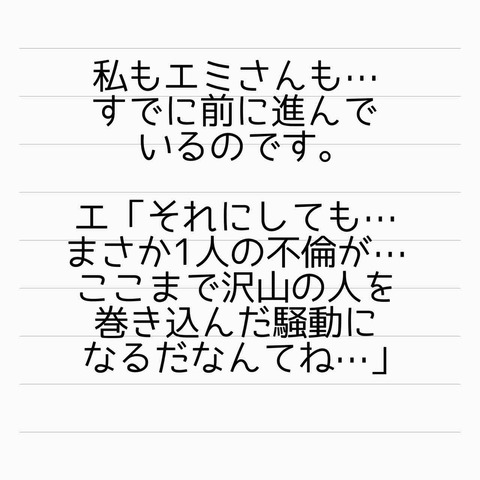 私もエミさんも…
すでに前に進んで
いるのです。
エ「それにしても…
まさか1人の不倫が…
ここまで沢山の人を
巻き込んだ騒動に
なるだなんてね…」